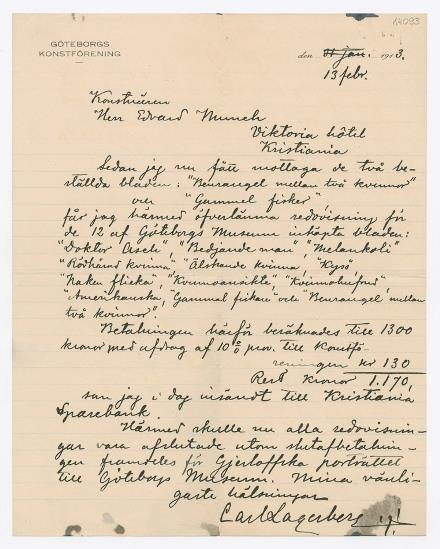 K4093
GÖTEBORGS
KONSTFÖRENING
den 31 jan. 1913.
13 febr.
Konstnären
Herr Edvard Munch
Viktoria hôtel
Kristiania
Sedan jag nu fått mottaga de två be-
ställda bladen: "Benrangel mellan två kvinnor"
och "Gammel fisker"
får jag härmed öfverlämna redovisning för
de 12 af Göteborgs Museum inköpta bladen:
"Doktor Asch" "Bedjande man", "Melankoli"
"Rödhårad kvinna", "Älskande kvinna", "Kyss"
"Naken flicka", "Kvinnoansikte", "Kvinnohufvud",
"Amerikanska, Gammal fiskare" och "Benrangel mellan
två kvinnor".
Betalningen härför beräknades till 1300
kronor med afdrag af 10% prov. till Konstfö-
reningen kr 130
Rest Kronor 1.170,
som jag i dag insändt till Kristiania
Sparebank.
Härmed skulle nu alla redovisnin-
gar vara afslutade utom slutafbetalnin-
gen framdeles för Gjerloffska porträttet
till Göteborgs Museum. Mina vänli-
gaste hälsningar
Carl Lagerberg